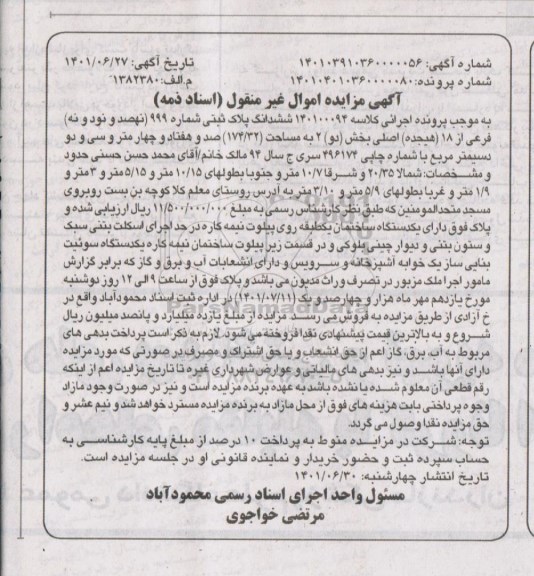 شماره آگهی: ۱۴۰۱۰۳۹۱۰۳۶۰۰۰۰۰۵۶
تاریخ آگهی: ۱۴۰۱/۰۶/۲۷
شماره پرونده: ۱۴۰۱۰۴۰۱۰۳۶۰۰۰۰۰۸۰
م.الف: ۱۳۸۲۳۸۰
آگهی مزایده اموال غیر منقول (اسناد ذمه)
به موجب پرونده اجرائی کلاسه ۱۴۰۱۰۰۰۹۴ ششدانگ پلاک ثبتی شماره ۹۹۹ (نهصد و نود و نه)
فرعی از ۱۸ (هیجده) اصلی بخش (دو) ۲ به مساحت (۱۷۴/۳۲) صد و هفتاد و چهار متر و سی و دو
دسیمتر مربع با شماره چاپی ۴۹۶۱۷۴ سری ج سال ۹۴ مالک خانم/آقای محمد حسن حسنی حدود
و مشخصات: شمالا ۲۰/۳۵ و شرقا ۱۰/۷ متر و جنوبا بطولهای ۱۰/۱۵ متر و ۵/۱۵ متر و ۳ متر و
۱/۹ متر و غربا بطولهای ۵/۹ متر و ۳/۱۰ متر به آدرس روستای معلم کلا کوچه بن بست روبروی
مسجد متحدالمومنین که طبق نظر کارشناس رسمی به مبلغ ۱۱/۵۰۰/۰۰۰/۰۰۰ ریال ارزیابی شده و
پلاک فوق دارای یکدستگاه ساختمان یکطبقه روی پیلوت نیمه کاره در حد اجرای اسکلت بتنی سبک
و ستون بتنی و دیوار چینی بلوکی و در قسمت زیر پیلوت ساختمان نیمه کاره یکدستگاه سوئیت
بنایی ساز یک خوابه آشپزخانه و سرویس و دارای انشعابات آب و برق و گاز که برابر گزارش
مامور اجرا ملک مزبور در تصرف وراث مدیون می باشد و پلاک فوق از ساعت ۹ الی ۱۲ روز دوشنبه
مورخ یازدهم مهر ماه هزار و چهارصد و یک (۱۴۰۱/۰۷/۱۱) در اداره ثبت اسناد محمودآباد واقع در
خ آزادی از طریق مزایده به فروش می رسد. مزایده از مبلغ یازده میلیارد و پانصد میلیون ریال
شروع و به بالاترین قیمت پیشنهادی نقدا فروخته می شود. لازم به ذکر است پرداخت بدهی های
مربوط به آب، برق، گاز اعم از حق انشعاب و یا حق اشتراک و مصرف در صورتی که مورد مزایده
دارای آنها باشد و نیز بدهی های مالیاتی و عوارض شهرداری غیره تا تاریخ مزایده اعم از اینکه
رقم قطعی آن معلوم شده یا نشده باشد به عهده برنده مزایده است و نیز در صورت وجود مازاد
وجوه پرداختی بابت هزینه های فوق از محل مازاد به برنده مزایده مسترد خواهد شد و نیم عشر و
حق مزایده نقدا وصول می گردد.
توجه: شرکت در مزایده منوط به پرداخت ۱۰ درصد از مبلغ پایه کارشناسی به
حساب سپرده ثبت و حضور خریدار و نماینده قانونی او در جلسه مزایده است.
تاریخ انتشار چهارشنبه: ۱۴۰۱/۰۶/۳۰
مسئول واحد اجرای اسناد رسمی محمودآباد
مرتضی خواجوی